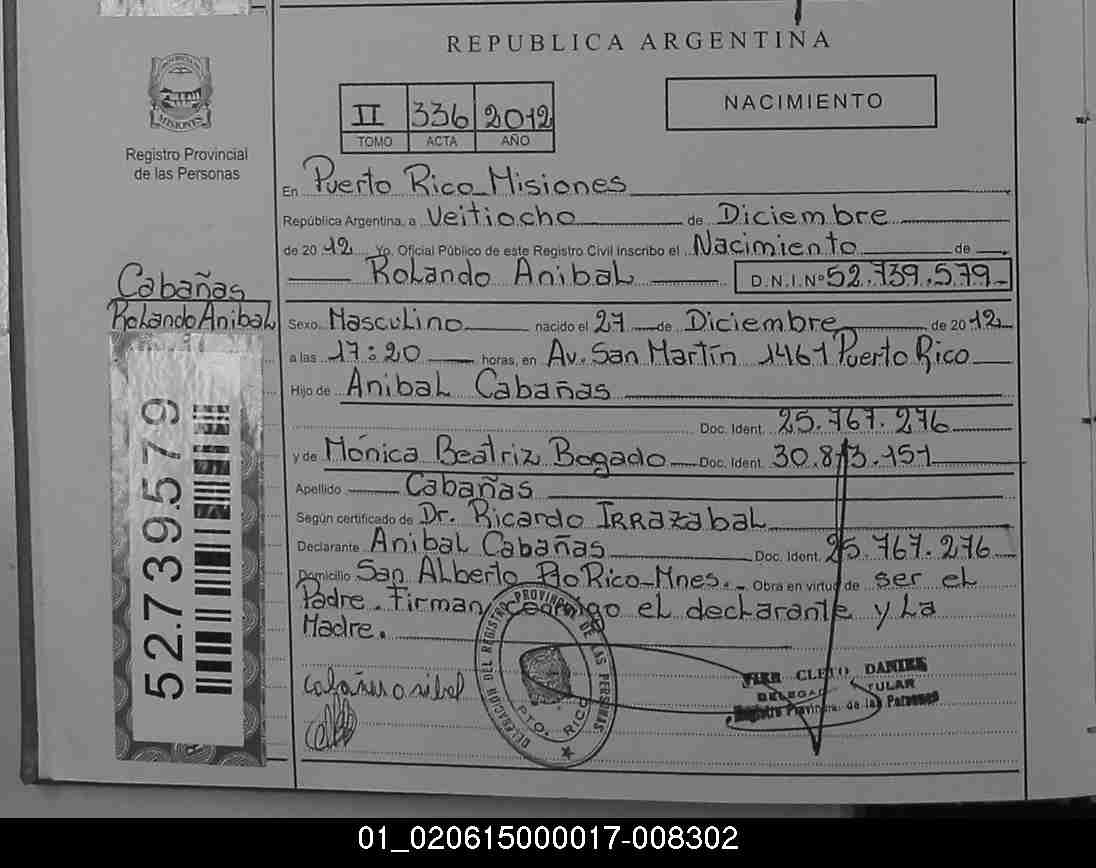 REPUBLICA ARGENTINA
II 336 2012
TOMO ACTA AÑO
NACIMIENTO
MISIONES
Registro Provincial
de las Personas
En Puerto Rico Misiones
República Argentina, a Veitiocho de Diciembre
de 2012 Yo, Oficial Público de este Registro Civil inscribo el Nacimiento de
Rolando Anibal D.N.I. Nº 52.739.579
Cabañas
Rolando Anibal
Sexo Masculino nacido el 27 de Diciembre de 2012
a las 17:20 horas, en Av. San Martín 1461 Puerto Rico
Hijo de Anibal Cabañas
Doc. Ident. 25.767.276
y de Mónica Beatriz Bogado Doc. Ident. 30.873.151
Apellido Cabañas
Según certificado de Dr. Ricardo Irrazabal
Declarante Anibal Cabañas Doc. Ident. 25.767.276
Domicilio San Alberto Pto Rico-Mnes.- Obra en virtud de ser el
Padre. Firman conmigo el declarante y la
Madre.
52.739.579
DELEGACION DEL REGISTRO PROVINCIAL DE LAS PERSONAS
PTO. RICO
CLETO DANIEL
TULAR
Registro Provincial de las Personas
01_020615000017-008302